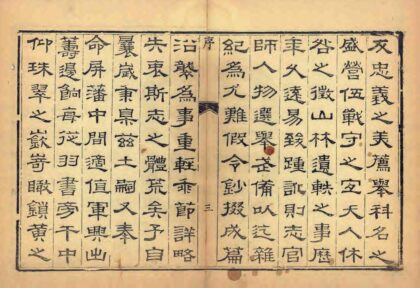 及忠義之美薦舉科名之
盛營伍戰守之宜天人休
咎之徵山林遺軼之事歷
年久遠易致踵訛則志官
師人物選舉武備以迄雜
紀為尤難假令鈔掇成篇
序 三
沿襲為事重輕乖節詳略
失衷斯志之體荒矣予自
曩歲秉臬茲土嗣又奉
命屏藩中間適值軍興出
籌邊餉每從羽書旁午中
仰珠翠之嶔崎瞰鎖黃之